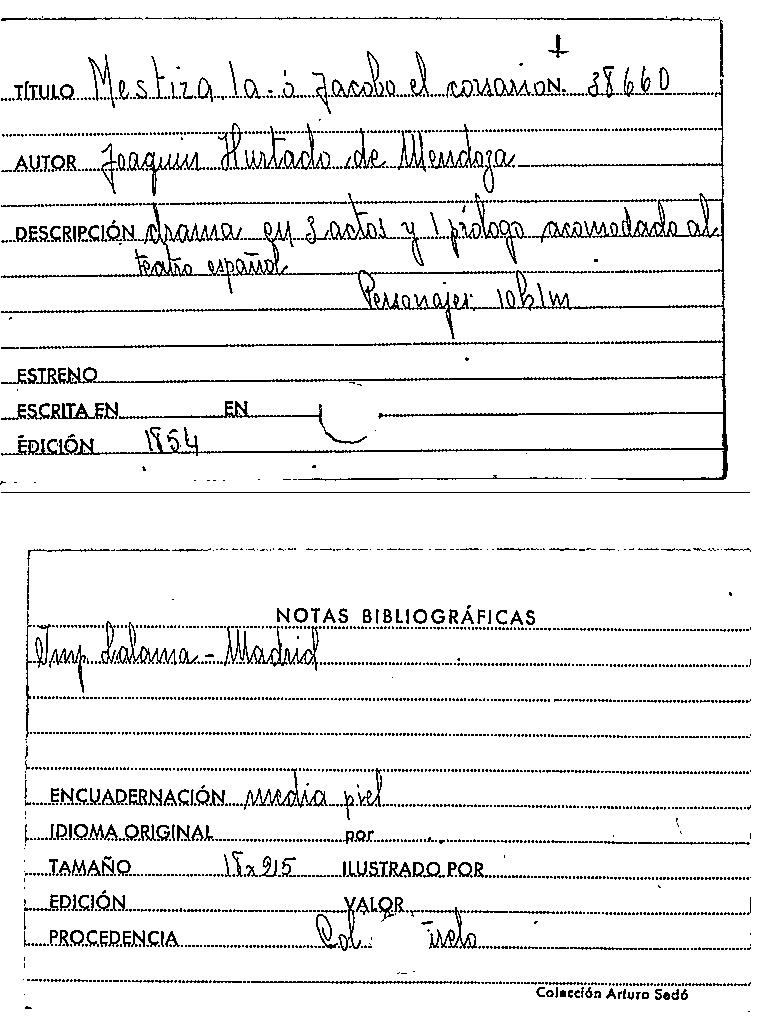 TÍTULO Mestiza, la - ó Jacobo el corsario N. 38660
AUTOR Joaquin Hurtado de Mendoza
DESCRIPCIÓN drama en 3 actos y 1 prólogo acomodado al
teatro español
Personajes: 10h1m
ESTRENO
ESCRITA EN EN
EDICIÓN 1854
NOTAS BIBLIOGRÁFICAS
Imp Lalama - Madrid
ENCUADERNACIÓN media piel
IDIOMA ORIGINAL por
TAMAÑO ILUSTRADO POR
EDICIÓN VALOR
PROCEDENCIA Col.
Colección Arturo Sedó